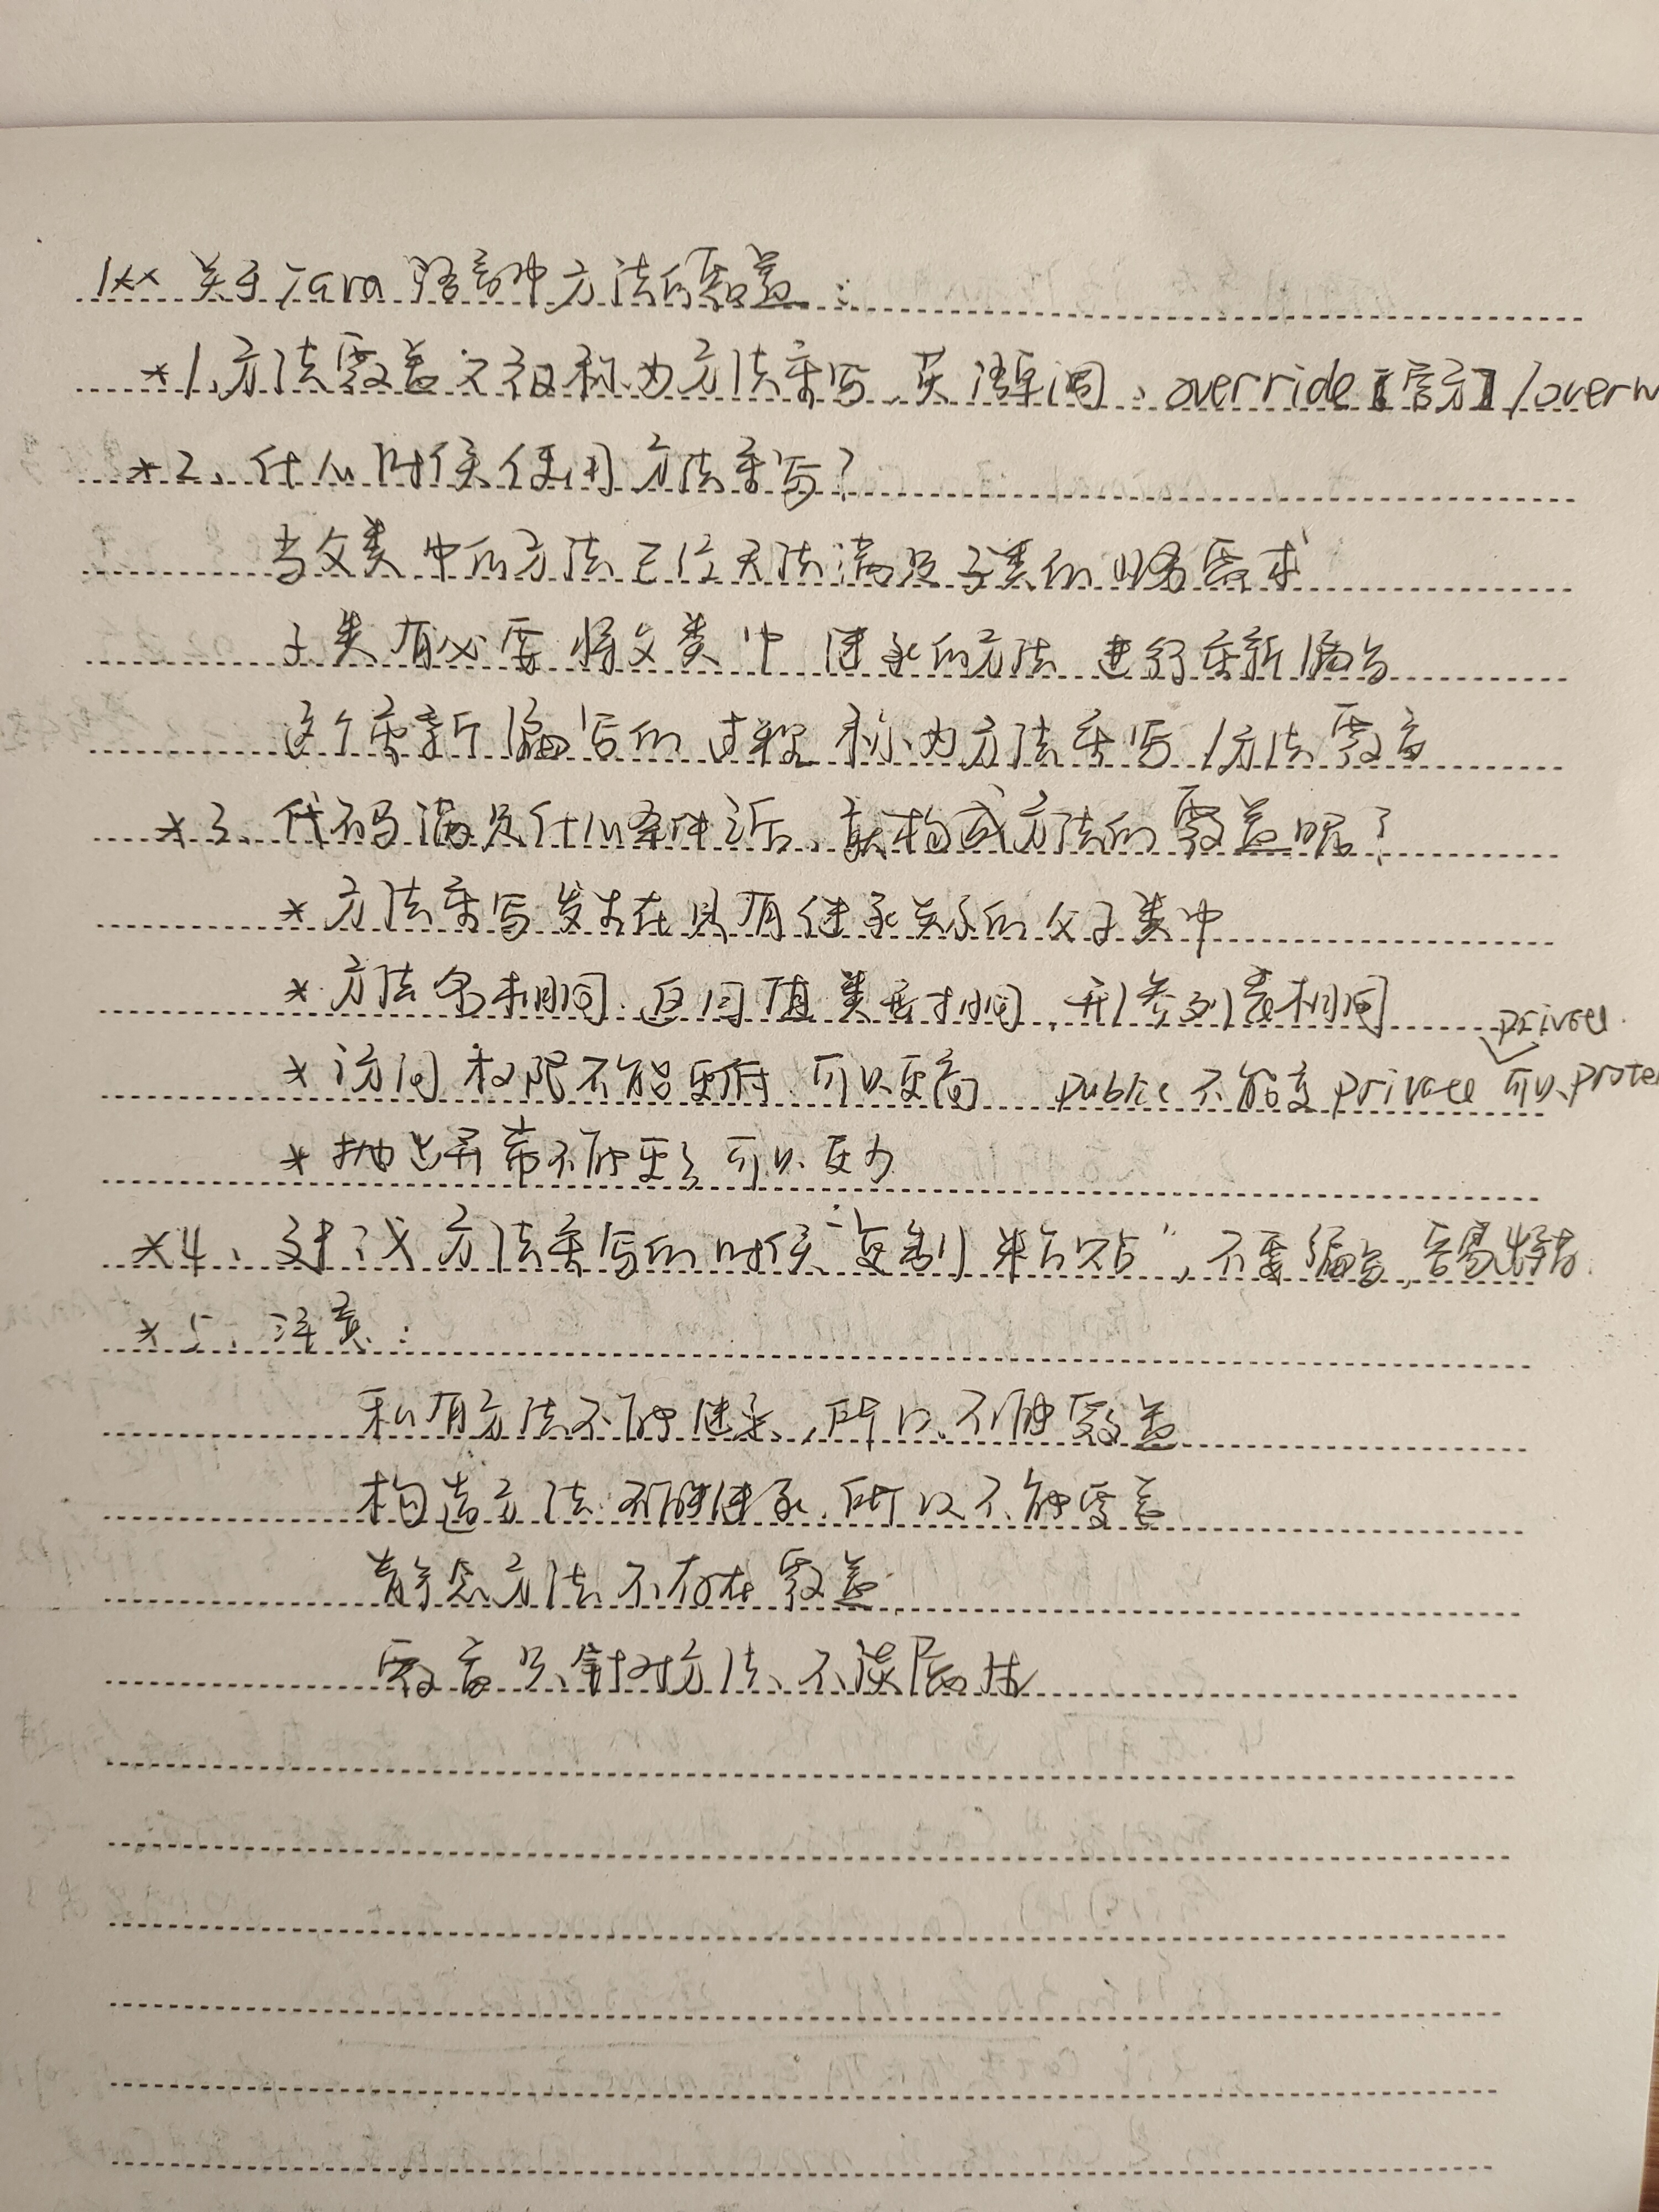 /** 关于Java语言中方法的覆盖:
*1、方法覆盖又被称为方法重写,英语单词、override【官方】/overw
*2、什么时候使用方法重写?
当父类中的方法已经无法满足子类的业务需求
子类有必要将父类中 继承的方法 进行重新编写
这个重新编写的过程 称为方法重写/方法覆盖
*3、代码满足什么条件之后、就构成方法的覆盖呢?
* 方法重写发生在具有继承关系的父子类中
* 方法名相同.返回值类型相同,形参列表相同
* 访问权限不能更低.可以更高 public不能变private 可以prote
* 抛出异常不能更多 可以更少
*4、 方法重写的时候“复制粘贴”,不要编写,容易
*5、注意:
私有方法不能继承,所以不能覆盖
构造方法不能继承.所以不能覆盖
静态方法不存在覆盖.
覆盖只针对方法、不谈属性